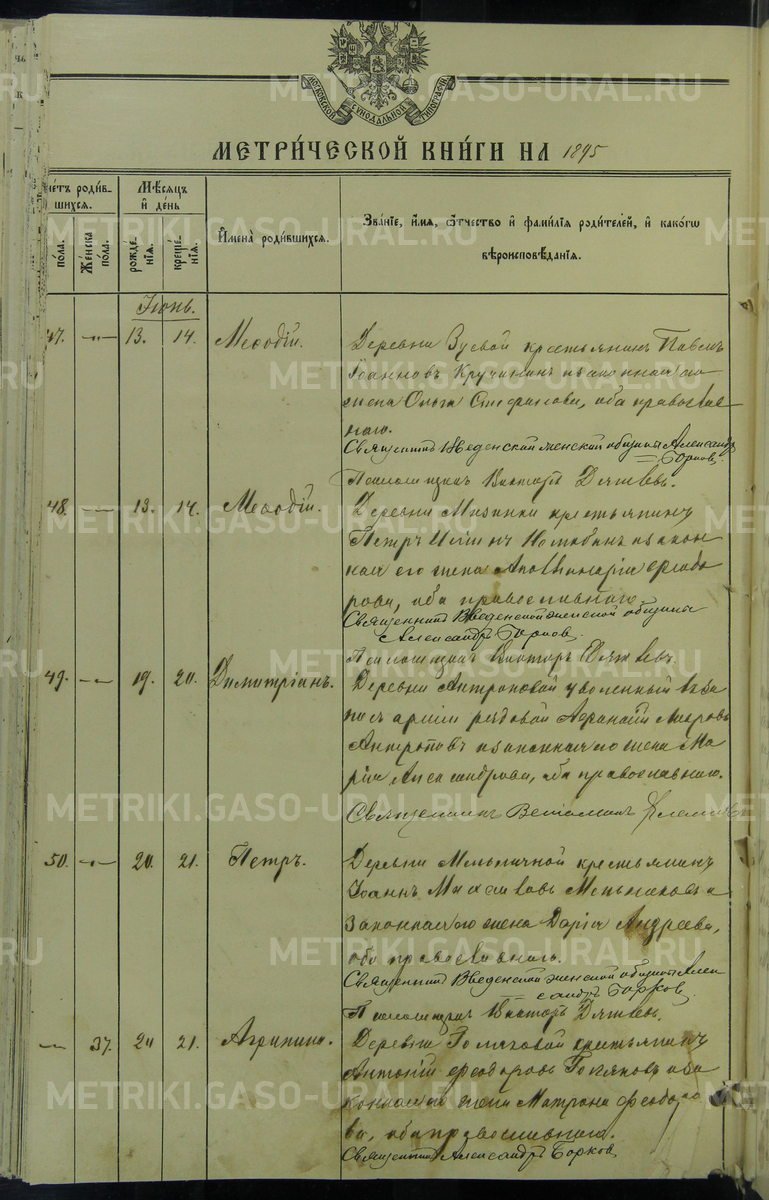 МОСКОВСКОЙ СУНОДАЛЬНОЙ ТИПОГРАФІИ
МЕТРИ́ЧЕСКОЙ КНИ́ГИ НА 1895
Счетъ роди́вшихся.
Мѣсяцъ и҆ де́нь
И҆мена̀ роди́вшихся.
Зва́нїе, и҆́мя, ѻ҆́тчество и҆ фами́лїя роди́телей, и҆ како́гѡ вѣроисповѣ́данїя.
по́ла.
Же́нска по́ла.
рожде́нїя.
креще́нїя.
Іюнь.
47. —"— 13. 14. Меѳодій.
Деревни Зуевой крестьянинъ Павелъ
Іоанновъ Кручининъ и законная его
жена Ольга Стефанова, оба православ-
наго.
Священникъ Введенской женской общины Александръ
Борковъ.
Псаломщикъ Викторъ
48. —"— 13. 14. Меѳодій.
Деревни крестьянинъ
Петръ и закон-
ная его жена Аполлинарія Ѳеодо-
рова, оба православнаго.
Священникъ Введенской женской общины
Александръ Борковъ.
Псаломщикъ Викторъ
49. —"— 19. 20. Димитріанъ.
Деревни Антроповой уволенный въ за-
пасъ арміи рядовой Аѳанасій
Антроповъ и законная его жена Ма-
рія Александрова, оба православнаго.
Священникъ
50. —"— 20. 21. Петръ.
Деревни Мельничной крестьянинъ
Іоаннъ Мельниковъ и
законная его жена Дарія Андреева,
оба православнаго.
Священникъ Введенской женской общины Алек-
сандръ Борковъ
Псаломщикъ Викторъ
— 37. 20 21. Агрипина.
Деревни крестьянинъ
Антоній Ѳеодоровъ и за-
конная его жена Матрона Ѳеодоро-
ва, оба православнаго.
Священникъ Александръ Борковъ
METRIKI.GASO-URAL.RU